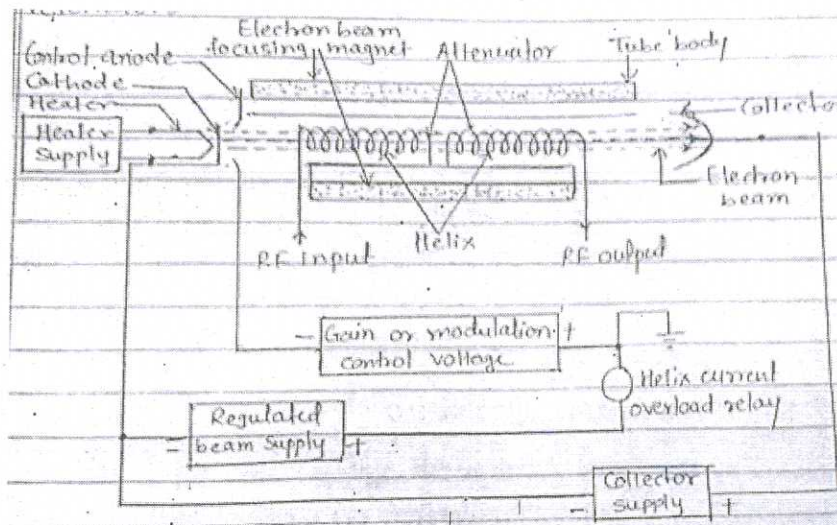 Electron beam
focusing magnet
Attenuator
Tube body
Control anode
Cathode
Heater
Collector
Heater
Supply
Electron
beam
RF Input
Helix
RF output
- Gain or modulation +
control voltage
Helix current
overload relay
Regulated
- beam Supply +
Collector
- supply +